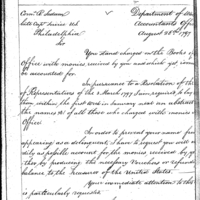 Department of War
Accountants Office
August 28th 1797
Philadelphia
Sir
You stand charged in the Books of
Office with monies received by you and which yet remain
be accounted for.
In pursuance to a Resolution of the
of Representatives of the 3 March 1797 I am required to lay
them within the first week in January next an abstract
the names of all those who charged with monies
Office
In order to prevent your name from
appearing as a delinquent, I have to request you will as
as possible account for the monies received by
by producing the necessary Vouchers or refund
balance to the Treasurer of the United States.
Your immediate attention to this
is particularly requested